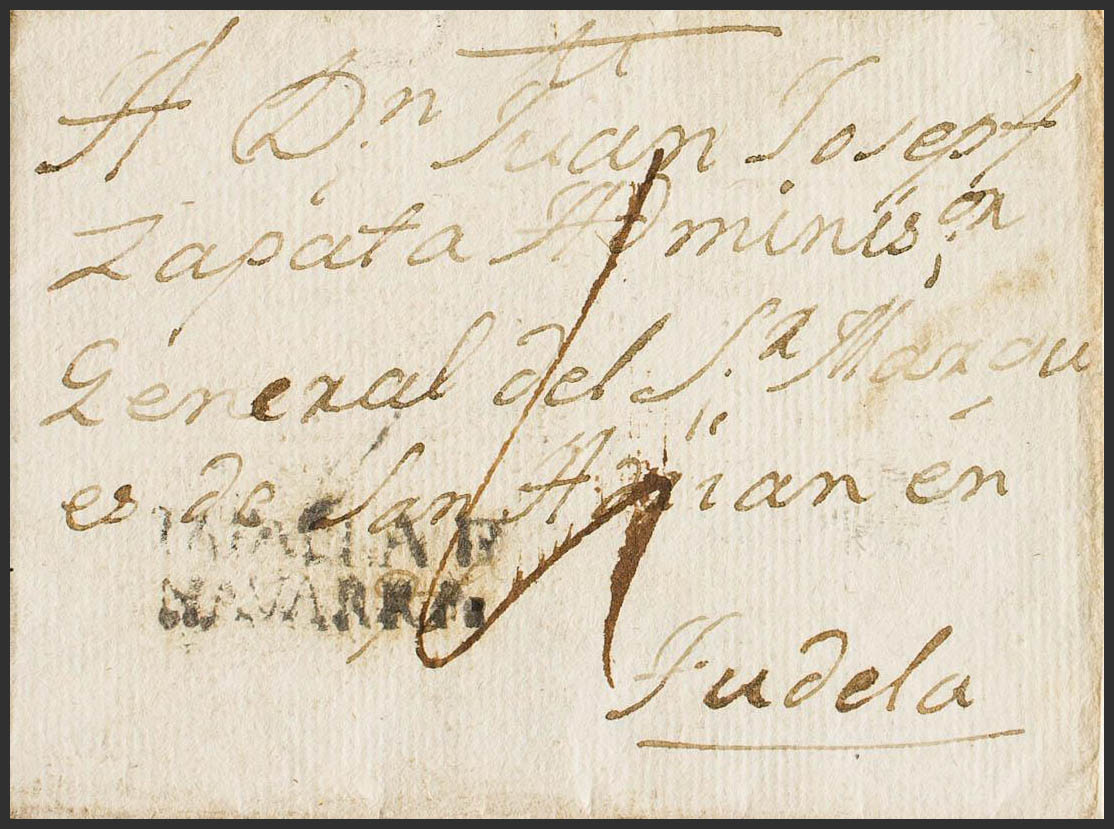 A Dn. Juan Joseph
Zapata Adminis.or
General del S.r Marqu
es de San Adrian en
NAVARRA
Tudela